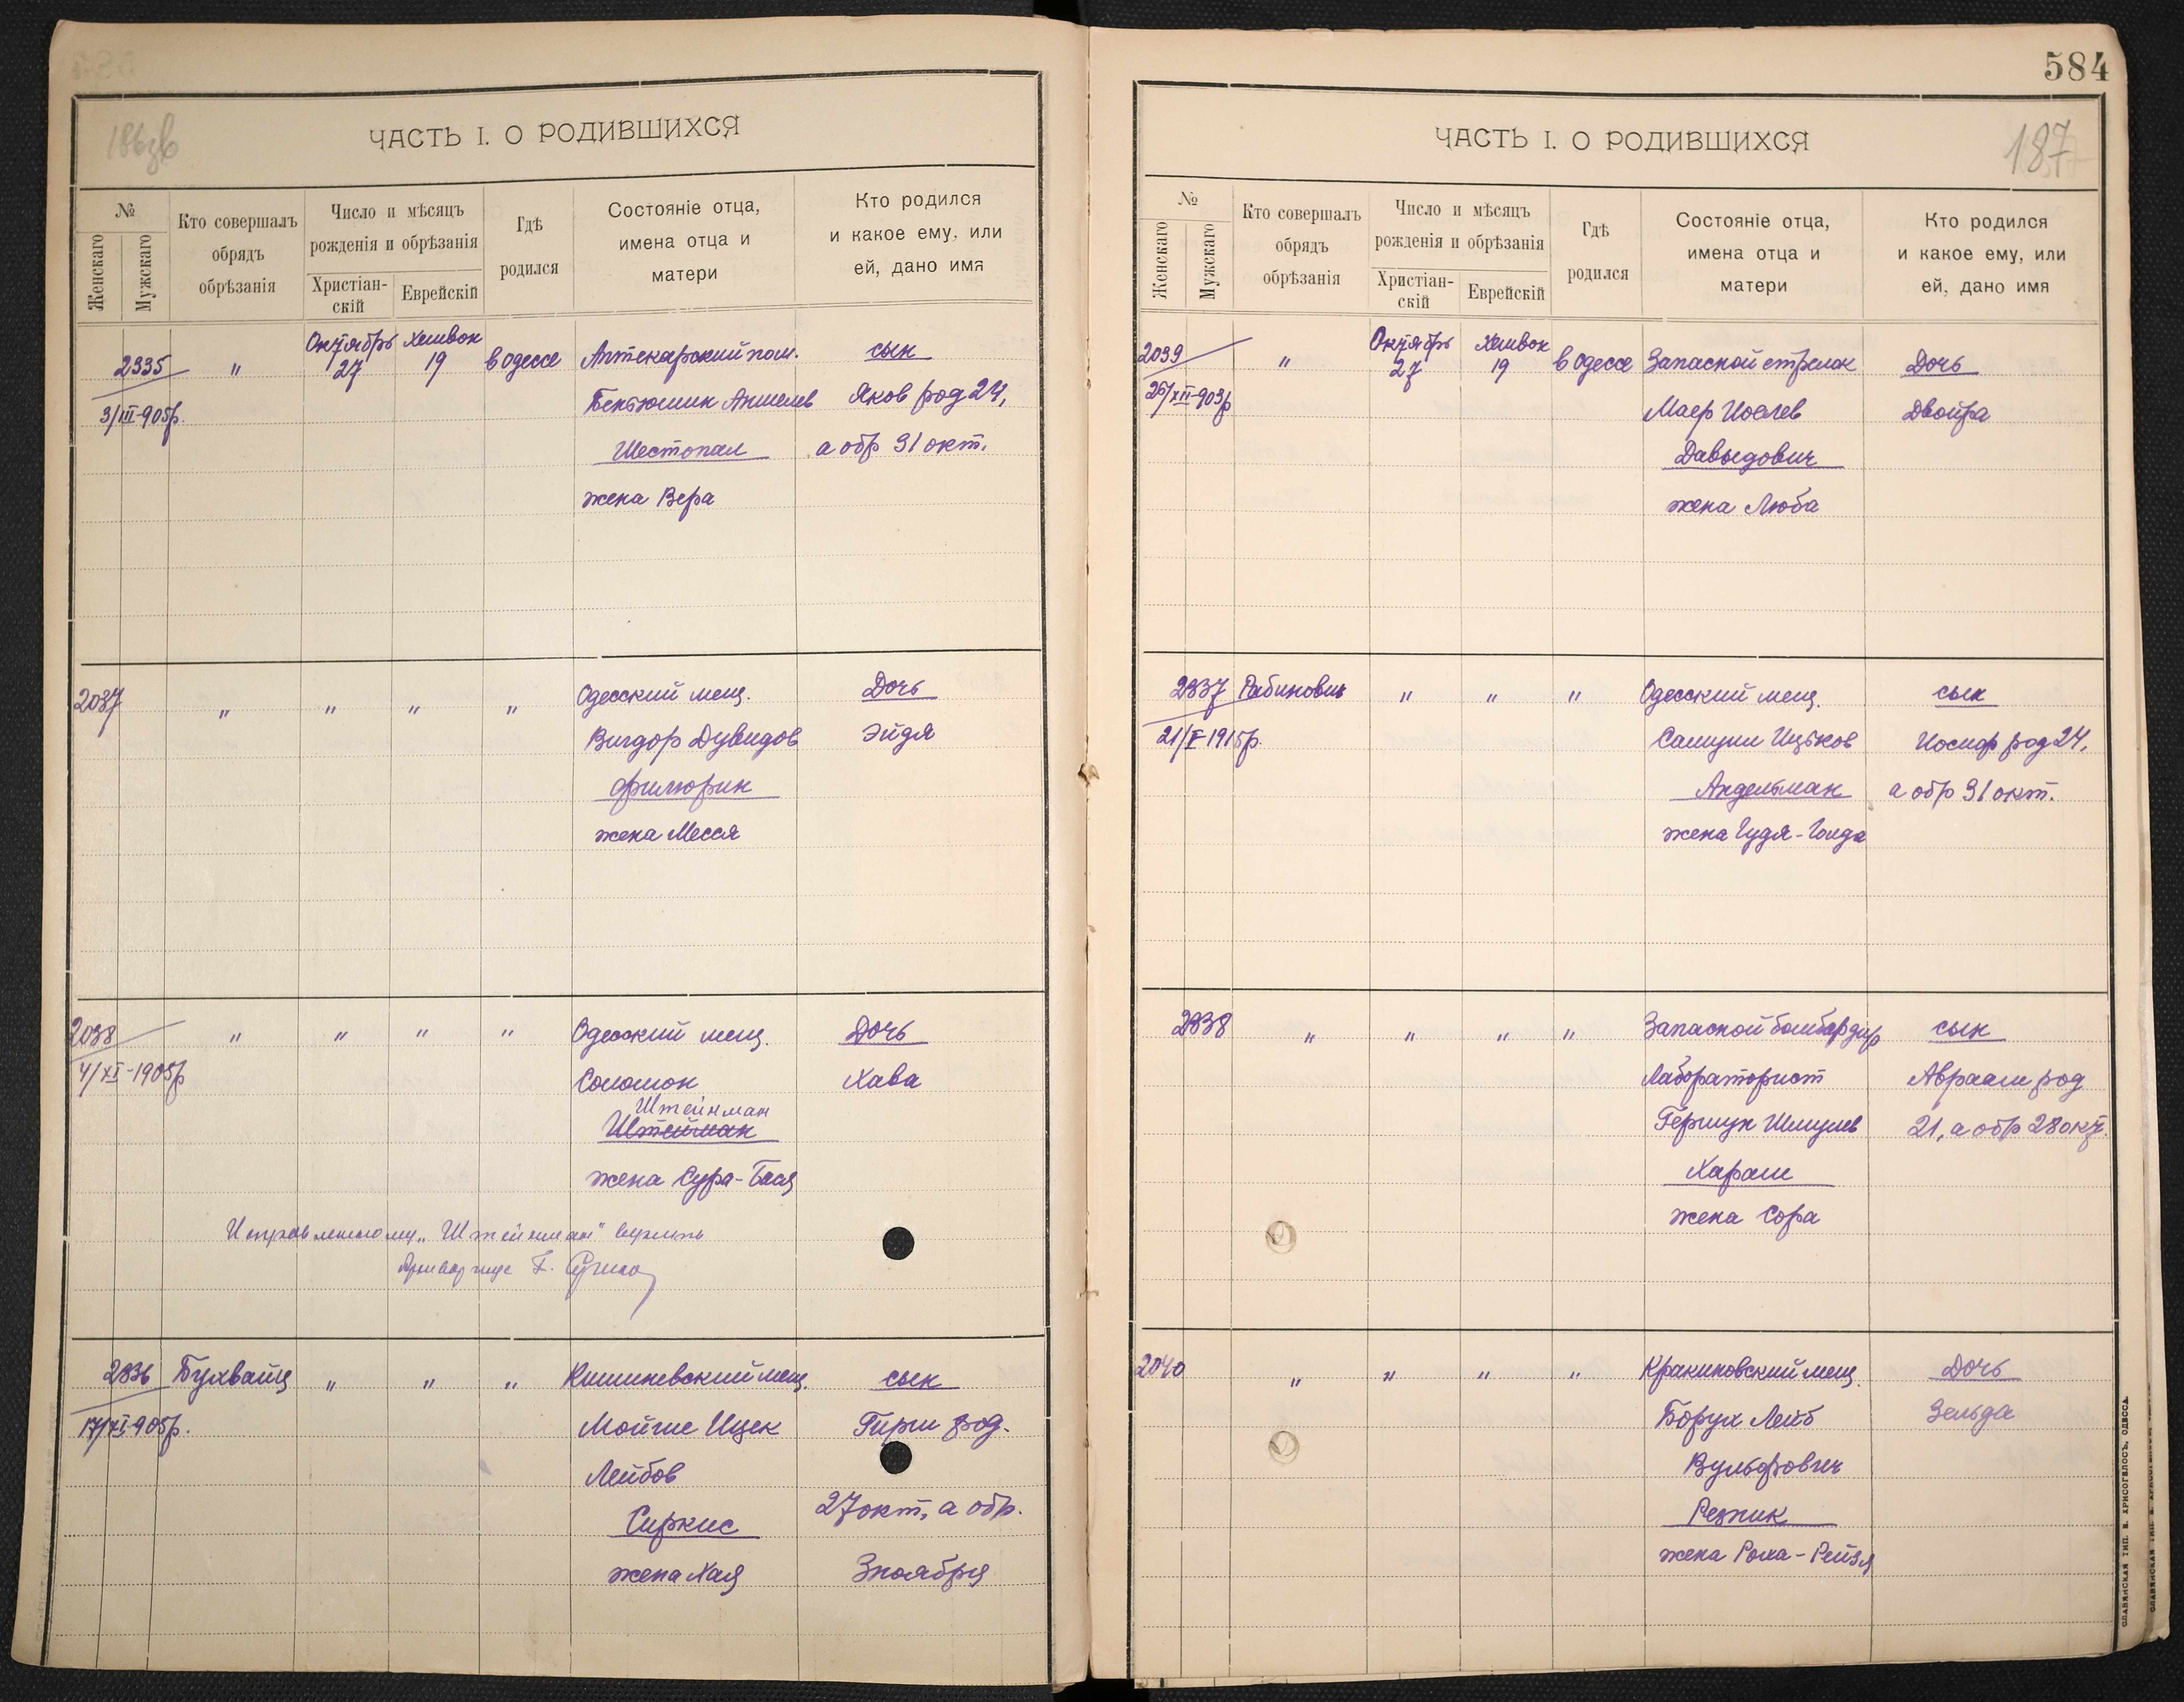 186зв
ЧАСТЬ I. О РОДИВШИХСЯ
№
Женскаго
Мужскаго
Кто совершалъ
обрядъ
обрѣзанія
Число и мѣсяцъ
рожденія и обрѣзанія
Христіан-
скій
Еврейскій
Гдѣ
родился
Состояніе отца,
имена отца и
матери
Кто родился
и какое ему, или
ей, дано имя
2335 " Октябрь 27 Хешвон 19 в Одессе Аптекарский пом. сын
3/III-905р. Бенъюмин Аншелев Яков род 24,
Шестопал а обр 31 окт.
жена Вера
2037 " " " " Одесский мещ. Дочь
Вигдор Дувидов Эйдя
Филюрин
жена Месся
2038 " " " " Одесский мещ. Дочь
4/XI-1905р Соломон Хава
Штейнман
Штейман
жена Сура-Бася
Исправленному „Штейнман" верить
2336 Бухвайц " " " Кишиневский мещ. сын
17/XI-905р. Мойше Ицек Гирш род.
Лейбов
27 окт, а обр.
Сиркис
жена Хая 3 ноября
584
187
ЧАСТЬ I. О РОДИВШИХСЯ
№
Женскаго
Мужскаго
Кто совершалъ
обрядъ
обрѣзанія
Число и мѣсяцъ
рожденія и обрѣзанія
Христіан-
скій
Еврейскій
Гдѣ
родился
Состояніе отца,
имена отца и
матери
Кто родился
и какое ему, или
ей, дано имя
2039 " Октябрь 27 Хешвон 19 в Одессе Запасной стрелок Дочь
26/XII-903р Маер Иоелев Двойра
Давыдович
жена Люба
2337 Рабинович " " " Одесский мещ. сын
21/V-1915р. Самуил Ицьков Иосиф род 24,
Андельман а обр 31 окт.
жена Гудя-Голда
2338 " " " " Запасной бомбардир сын
Лабораторист Авраам род
Гершун Шмулев 21, а обр 28 окт.
Хараш
жена Сора
2040 " " " " Кракиновский мещ. Дочь
Борух Лейб Зельда
Вульфович
Резник
жена Роха-Рейзя
СЛАВЯНСКАЯ ТИП. Н. ХРИСОГЕЛОСЪ, ОДЕССА.